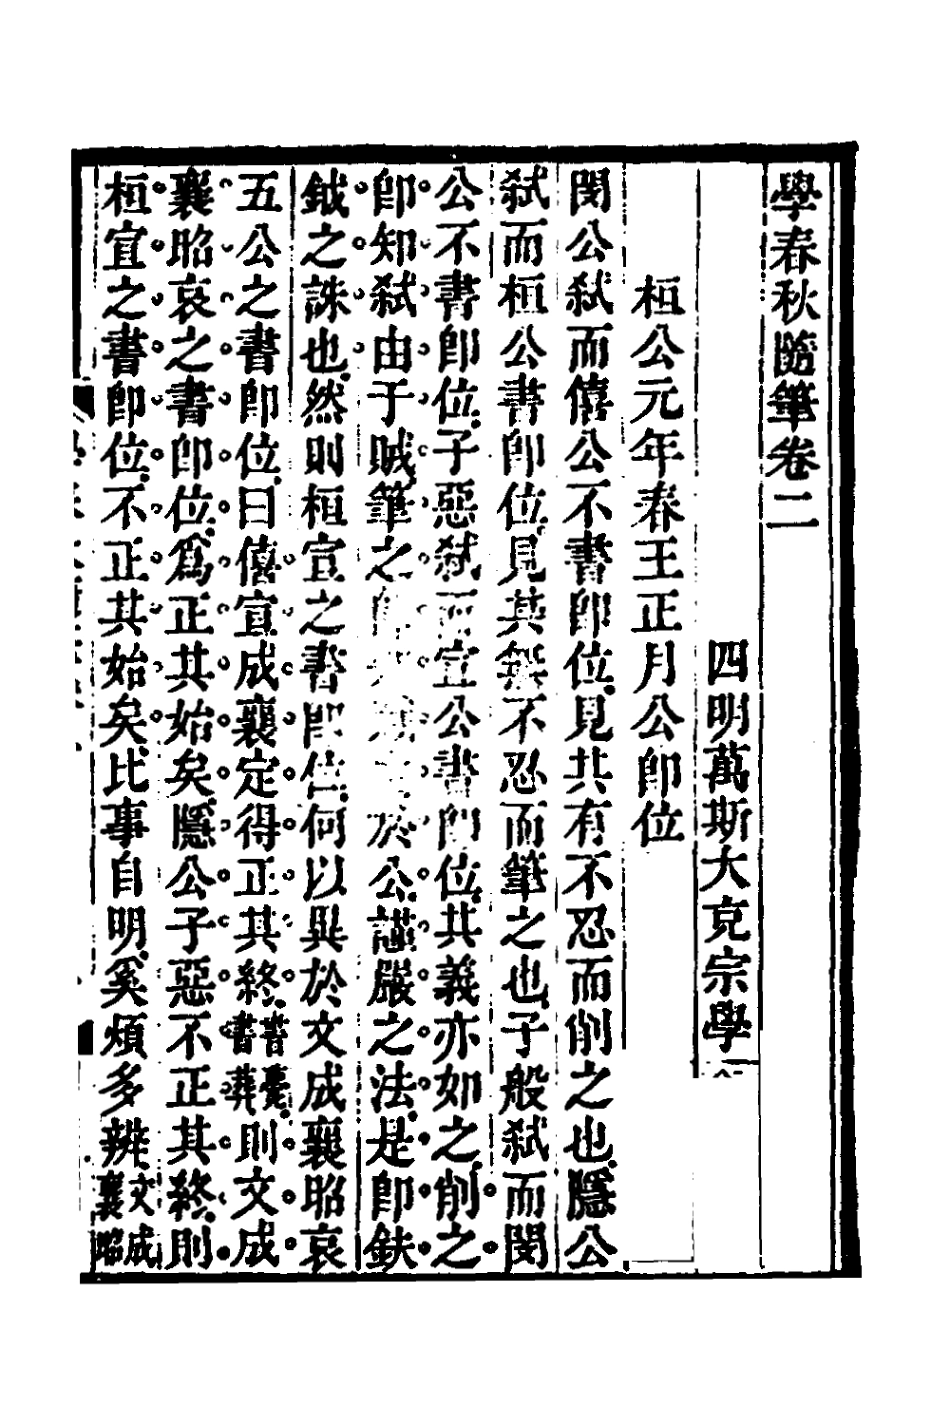 學春秋隨筆卷二
四明萬斯大充宗學
桓公元年春王正月公卽位
閔公弑而僖公不書卽位見其有不忍而削之也隱公
弑而桓公書卽位見其無不忍而筆之也子般弑而閔
公不書卽位子惡弑而宣公書卽位其義亦如之削之
卽知弑由于賊筆之於公謹嚴之法是卽鈇
鉞之誅也然則桓宣之書卽位何以異於文成襄昭哀
五公之書卽位曰僖宣成襄定得正其終書薨書葬則文成
襄昭哀之書卽位爲正其始矣隱公子惡不正其終則
桓宣之書卽位不正其始矣比事自明奚煩多辨文成襄昭